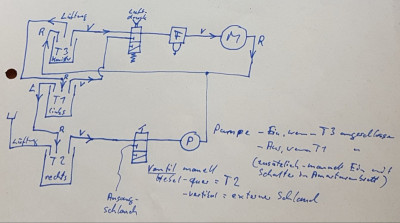 Lüftung
V
T3
V
F
V
M
R
R
L
R
V
T1
links
R
V
P
T2
rechts
Ansaug-
schlauch
Ventil manuell
Hebel - quer = T2
- vertikal = externe Schlauch
Pumpe - Ein, wenn T3 angeschlossen
- Aus, wenn T1 "
(zusätzlich manuell Ein mit
Schalter im Armaturenbrett)